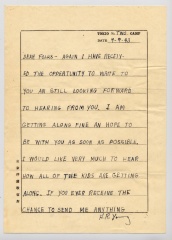 TOKIO CAMP
DATE 9-9-43
DEAR FOLKS - AGAIN I HAVE RECEIV-
ED THE OPPORTUNITY TO WRITE TO
YOU AN STILL LOOKING FORWARD
TO HEARING FROM YOU. I AM
GETTING ALONG FINE AN HOPE TO
BE WITH YOU AS SOON AS POSSIBLE.
I WOULD LIKE VERY MUCH TO HEAR
HOW ALL OF THE KIDS ARE GETTING
ALONG. IF YOU EVER RECEIVE THE
CHANCE TO SEND ME ANYTHING